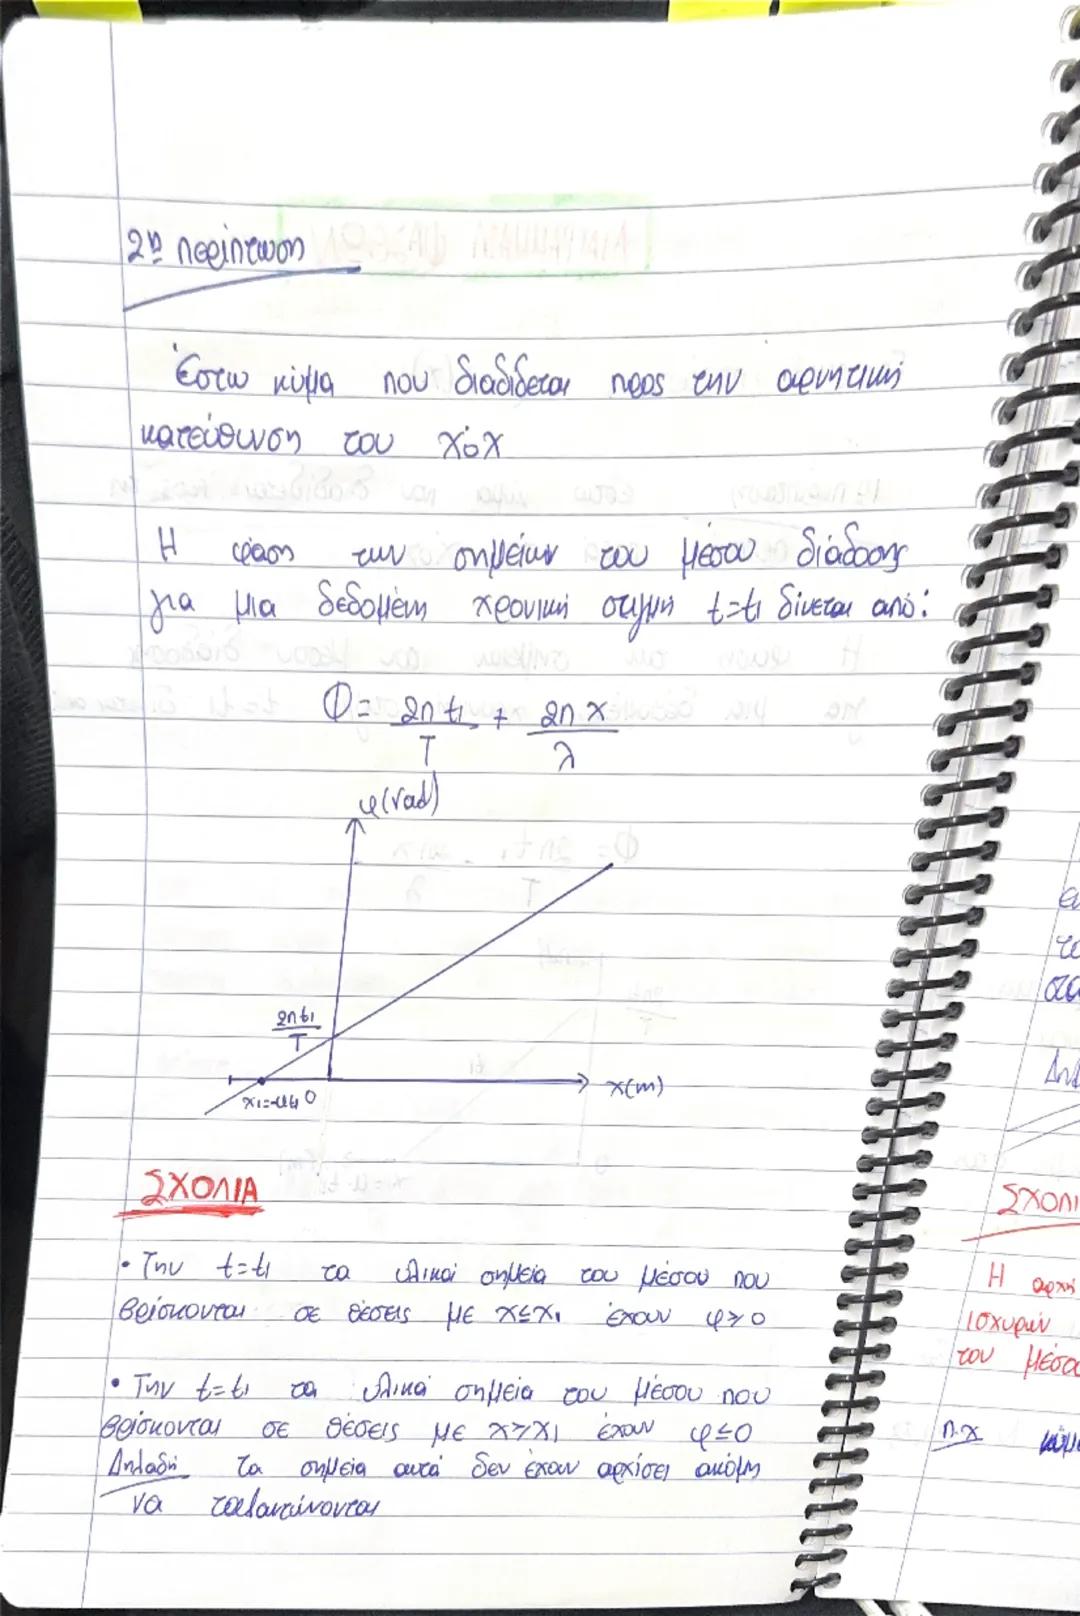 2η περίπτωση
Έστω κύμα που διαδίδεται προς την αρνητική
κατεύθυνση του x'οx
Η φάση των σημείων του μέσου διάδοσης
για μια δεδομένη χρονική στιγμή t=t₁ δίνεται από:
Φ = 2πt₁/T + 2πx/λ
φ(rad)
2πt₁/T
x₁=-υt₁ 0 x(m)
ΣΧΟΛΙΑ
• Την t=t₁ τα υλικά σημεία του μέσου που
βρίσκονται σε θέσεις με x≤x₁ έχουν φ≥0
• Την t=t₁ τα υλικά σημεία του μέσου που
βρίσκονται σε θέσεις με x≥x₁ έχουν φ≤0
Δηλαδή τα σημεία αυτά δεν έχουν αρχίσει ακόμη
να ταλαντώνονται
ΣΧΟΛΙ
Η αρχή
ισχυρών
του μέσο
π.χ